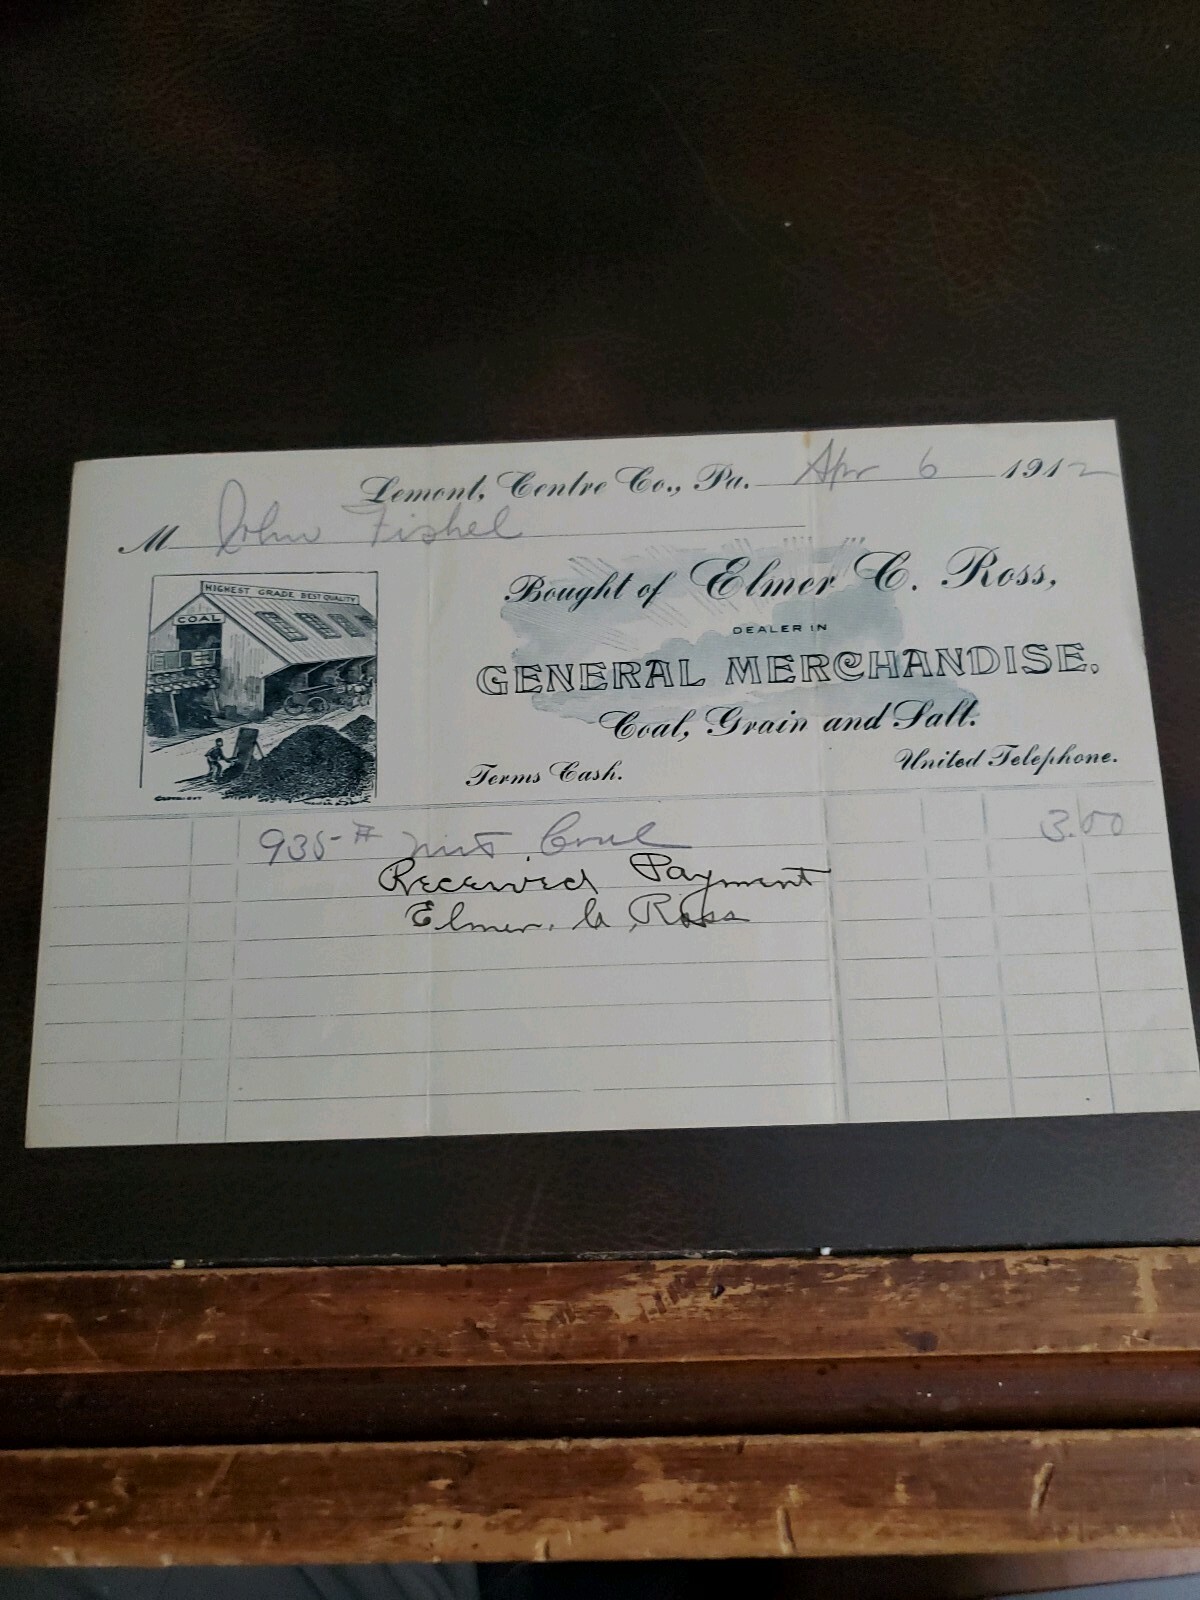 Lemont, Centre Co., Pa. Apr 6 1912
M John Fishel
HIGHEST GRADE BEST QUALITY
COAL
Bought of Elmer C. Ross,
DEALER IN
GENERAL MERCHANDISE.
Coal, Grain and Salt.
Terms Cash. United Telephone.
COPYRIGHT
935 # Nut Coal 3.00
Received Payment
Elmer. C Ross